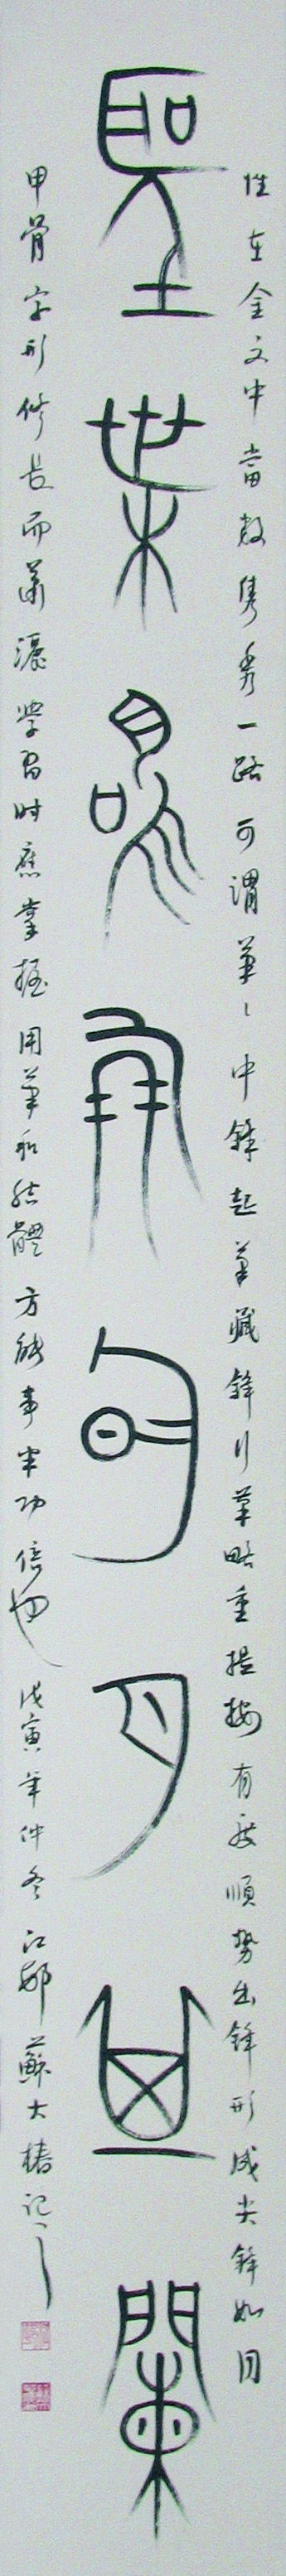 性在金文中當數雋秀一路可謂筆々中鋒起筆藏鋒行筆略重提按有度順勢出鋒形成尖鋒如同
聖枼旬月闌
甲骨字形修長而瀟灑學習時應掌握用筆和結體方能事半功倍也戊寅年仲冬江都蘇大椿記之